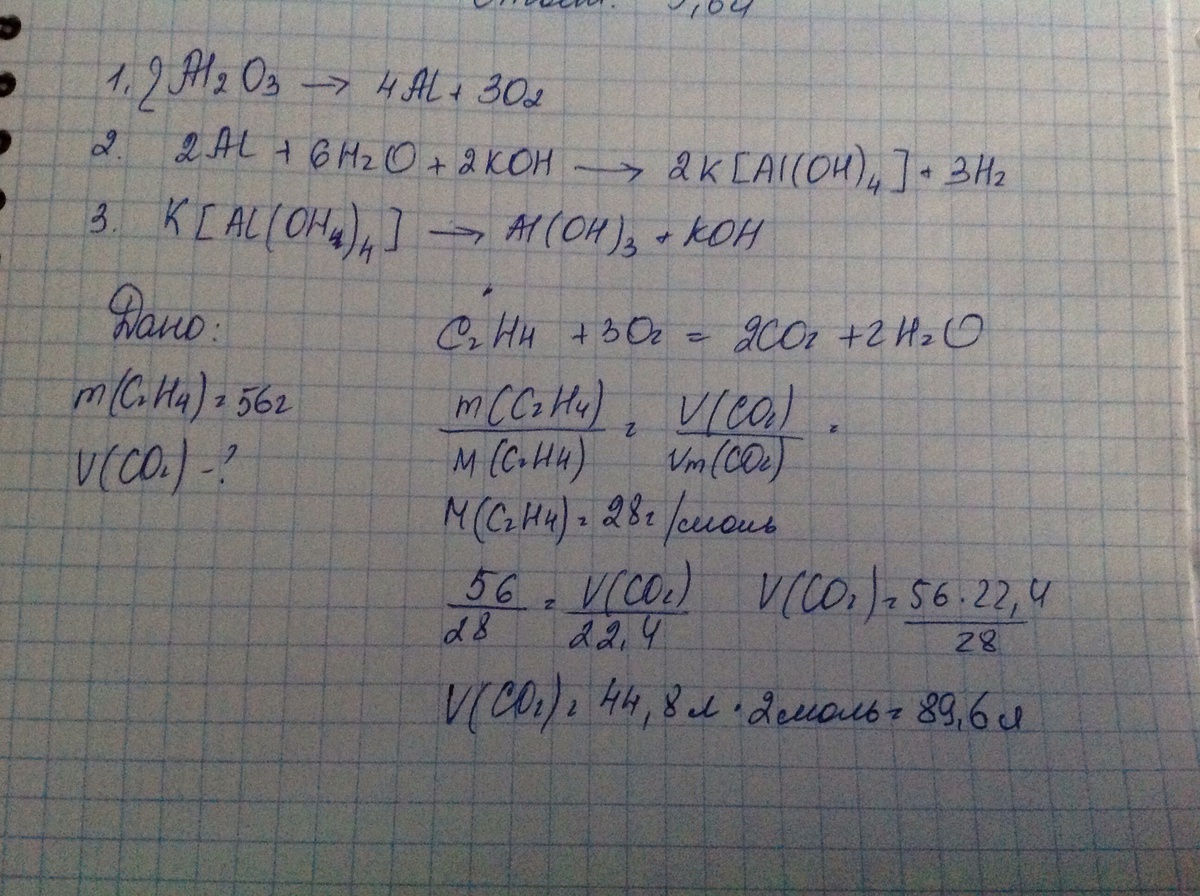 1. 2Al2O3 → 4Al + 3O2
2. 2Al + 6H2O + 2KOH → 2K[Al(OH)4] + 3H2
3. K[Al(OH4)4] → Al(OH)3 + KOH
Дано:
C2H4 + 3O2 = 2CO2 + 2H2O
m(C2H4) = 56г
m(C2H4) / M(C2H4) = V(CO2) / Vm(CO2) =
V(CO2) - ?
M(C2H4) = 28г/моль
56/28 = V(CO2)/22,4 V(CO2) = 56·22,4/28
V(CO2) = 44,8л · 2моль = 89,6л